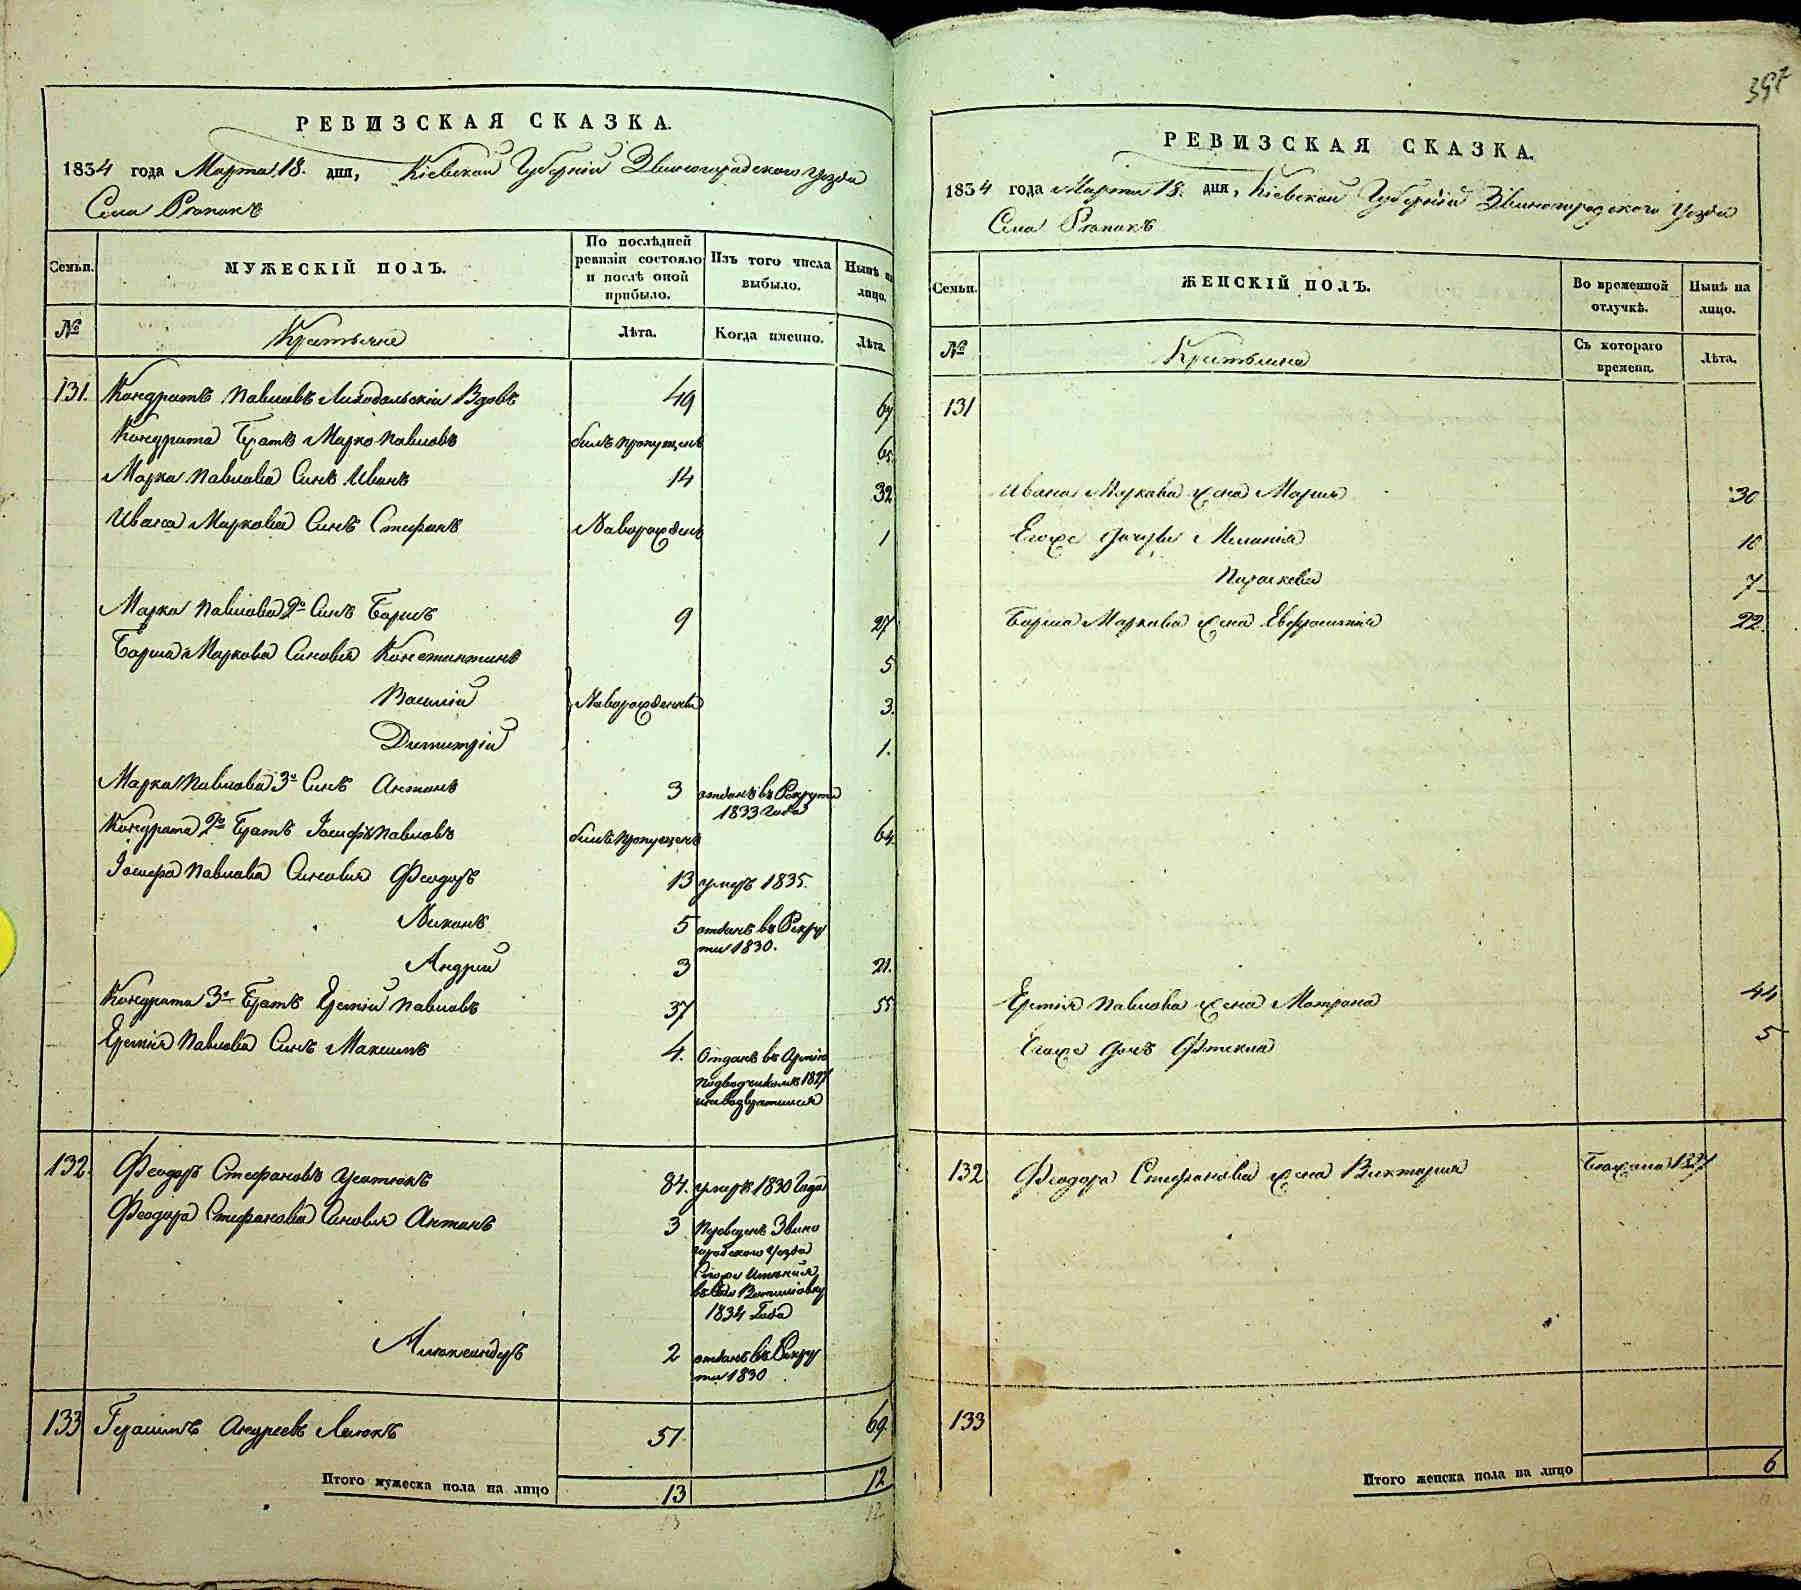 РЕВИЗСКАЯ СКАЗКА.
1834 года Марта 18. дня, Кіевской Губерніи Звиногородского Уезда
Села Рыпокъ
Семьи.
МУЖЕСКІЙ ПОЛЪ.
По послѣдней
ревизіи состояло
и послѣ оной
прибыло.
Изъ того числа
выбыло.
Нынѣ на
лицо.
№
Крестьяне
Лѣта.
Когда именно.
Лѣта.
131. Кондратъ Павловъ Вдовъ 49 67
Кондрата Братъ Марко Павловъ былъ пропущенъ 65.
Марка Павлова Синъ Иванъ 14 32
Ивана Маркова Синъ Стефанъ Наворожденъ 1
Марка Павлова 2й Синъ Борисъ 9 27
Бориса Маркова Синовья Констинтинъ 5
Василій Наворожденни 3.
Димитрій 1.
Марка Павлова 3й Синъ Антонъ 3 отданъ въ Рекрути
1833 Года
Кондрата 2й Братъ Іосифъ Павловъ былъ пропущенъ 64.
Іосифа Павлова Синовья Феодоръ 13 умеръ 1835.
Никонъ 5 отданъ въ Рекру
ти 1830.
Андрей 3 21.
Кондрата 3й Братъ Ермій Павловъ 37 55
Ермія Павлова Синъ Максимъ 4. Отданъ въ Армію
подводчикомъ 1827
132. Феодоръ Стефановъ 84. умеръ 1830 Года
Феодора Стефанова Синовья Антонъ 3 Переведенъ Звино
городского Уезда
1834 Года
Александръ 2 отданъ въ Рекру
ти 1830
133 Герасимъ Андреевъ 51 69.
Итого мужеска пола на лицо 13 12
13 12
397
РЕВИЗСКАЯ СКАЗКА.
1834 года Марта 18. дня, Кіевской Губерніи Звиногородского Уезда
Села Рыпокъ
Семьи.
ЖЕНСКІЙ ПОЛЪ.
Во временной
отлучкѣ.
Нынѣ на
лицо.
№
Крестьяне
Съ котораго
времени.
Лѣта.
131
Ивана Маркова жена Марія 30
Егоже дочери Меланія 10
Параскева 7
Бориса Маркова жена Евфросинія 22.
Ермія Павлова жена Матрона 44
Егоже дочь Фтекла 5
132 Феодора Стефанова жена Викторія 1827
133
Итого женска пола на лицо 6